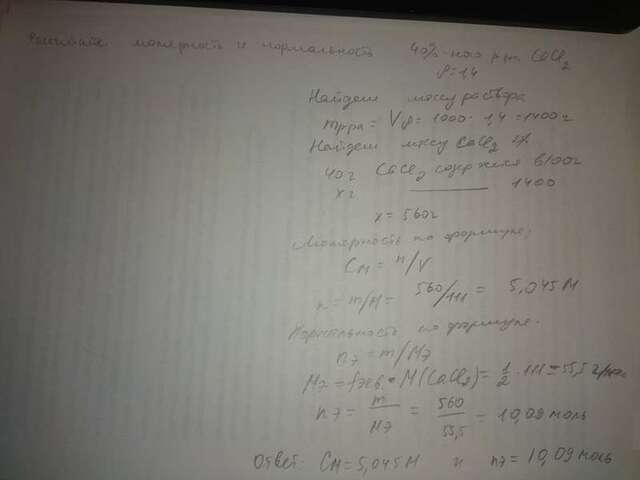 Рассчитать молярность и нормальность 40%-ного р-ра CaCl2
ρ=1,4
Найдем массу раствора
mр-ра = Vρ = 1000 · 1,4 = 1400 г
Найдем массу CaCl2
40 г CaCl2 содержится в 100 г
x г ——— 1400
x = 560 г
Молярность по формуле:
CM = n/V
n = m/M = 560/111 = 5,045 M
Нормальность по формуле.
nэ = m/Mэ
Mэ = fэкв. · M(CaCl2) = 1/2 · 111 = 55,5 г/моль
nэ = m/Mэ = 560/55,5 = 10,09 моль
Ответ: CM = 5,045 M и nэ = 10,09 моль